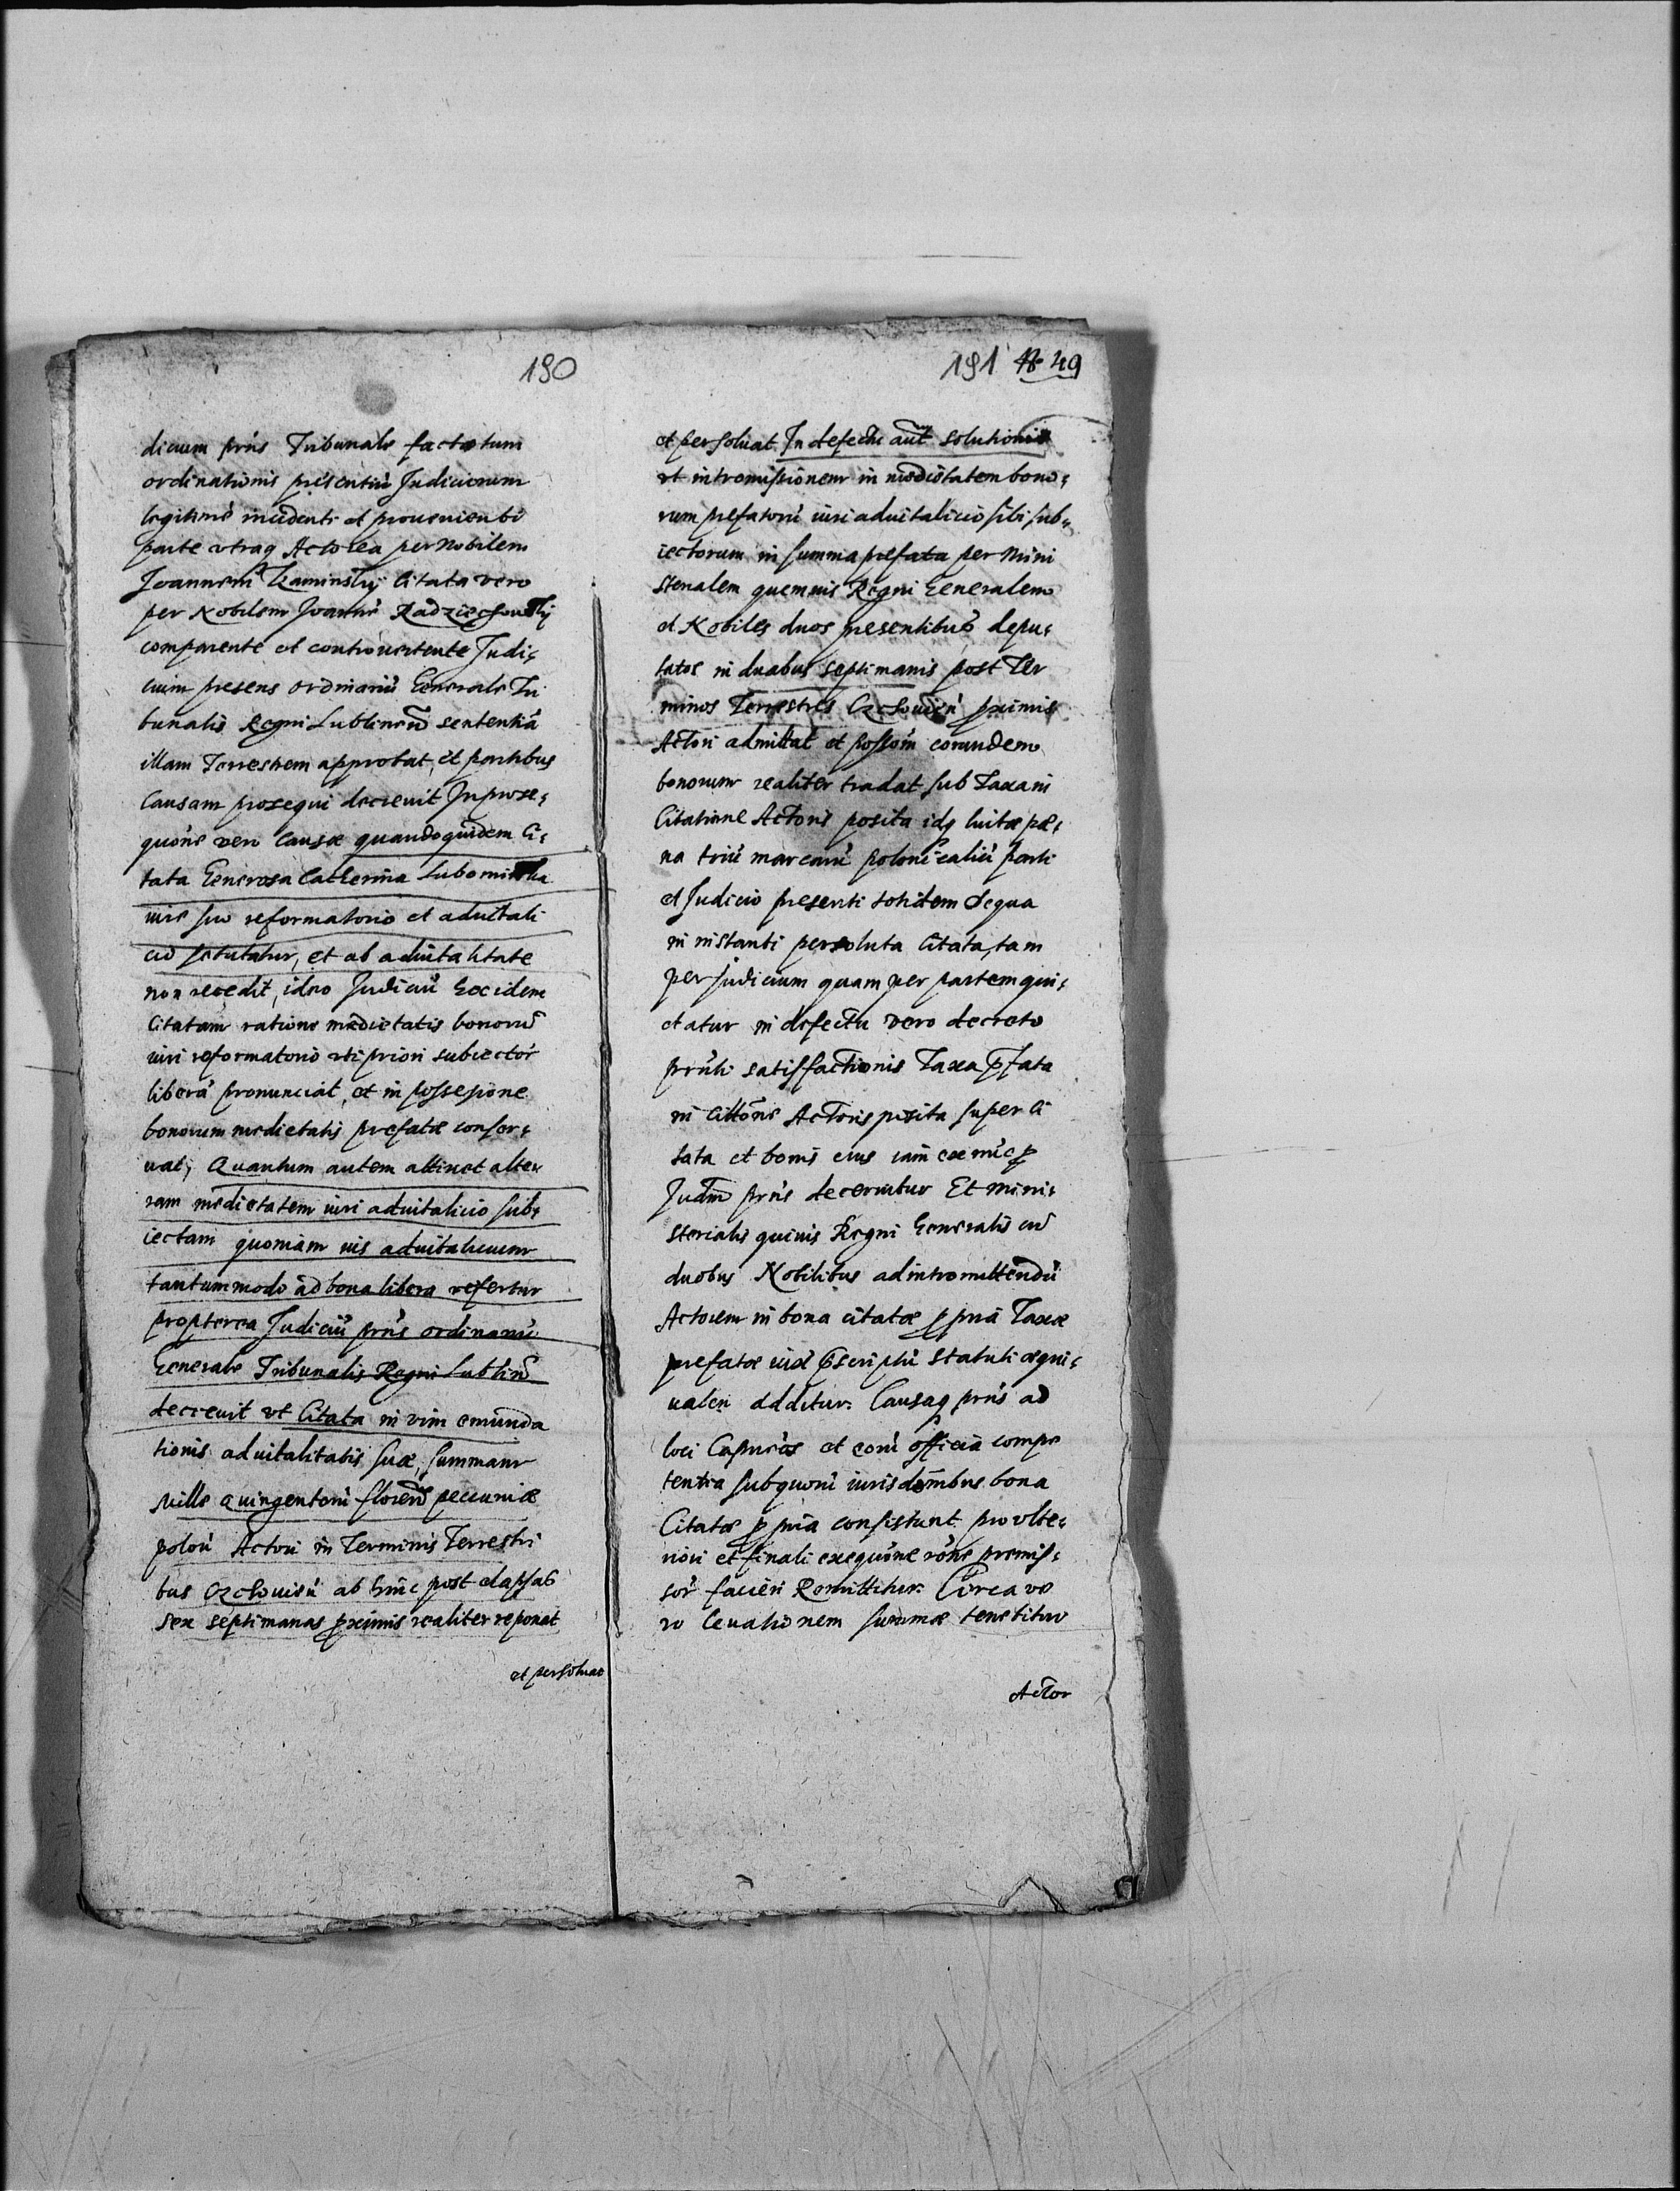 190
dicium prńs Tribunale factotum
ordinationis presentiũ Judiciorum
legitimè incidenti et prouenienti
parte vtraq Actorea per Nobilem
Joannem Kaminskÿ Citata vero
per Nobilem Joannẽ Radziechowskÿ
comparente et controuertente Judi,
cium presens ordinariũ Generale Tri
bunalis Regni Lublineñ sententiã
illam Terrestrem approbat, et partibus
Causam prosequi decreuit In prose,
quõne vero Causæ quandoquidem Ci,
tata Generosa Catherina Lubomirska
iure suo reformatorio et aduitali
cio se tutatur, et ab aduitalitate
non recedit, ideo Judiciũ hoc idem
Citatam ratione medietatis bonorũ
iuri reformatorio vti priori subiector̃
liberã pronunciat, et in possessione
bonorum medietatis prefatæ conser,
uat, Quantum autem attinet alte,
ram medietatem iuri aduitalicio sub,
iectam quoniam ius aduitalicium
tantummodo ad bona libera refertur
propterea Judiciũ prńs ordinariũ
Generale Tribunalis Regni Lubliñ
decreuit vt Citata in vim emunda
tionis aduitalitatis suæ, summam
Mille quingentorũ florenõ pecuniæ
poloń Actori in Terminis Terrestri
bus Czchouień ab hinc post elapsas
sex septimanas proximis realiter reponat
et persoluat
191 49
et persoluat. In defectu aut̃ solutionis
vt intromissionem in medietatem bono,
rum prefatorũ iuri aduitalicio sibi sub,
iectorum in summa prefata per Mini
sterialem quemuis Regni Generalem
et Nobiles duos presentibus depu,
tatos in duabus septimanis post Ter
minos Terrestres Czchouień proximis
Actori admittat et possõm eorundem
bonorum realiter tradat sub Taxa in
Citatione Actoris posita idq luitæ pæ,
na triũ marcarũ polonicaliũ parti
et Judicio presenti totidem de qua
in instanti persoluta Citata, tam
per Judicium quam per partem qui,
etatur in defectu vero decreto
prńti satisfactionis Taxa p̃fata
in Citt̃one Actoris posita super Ci
tata et bonis eius iam ex nũc p
Judm̃ prńs decernitur Et Mini,
sterialis quiuis Regni Generalis cũ
duobus Nobilibus ad intromittendũ
Actorem in bona citatæ p pñia Taxæ
prefatæ iux̃ p̃scriptũ statuti æqui,
ualeñ additur. Causaq prńs ad
loci Capturas et eorũ officia compe
tentia sub quorũ iurisdõmbus bona
Citatæ p pñia consistunt pro vlte,
riori et finali exequõne rõne premis,
sor̃ facień Remittitur. Circa ve
ro leuationem summæ tenebitur
Actor